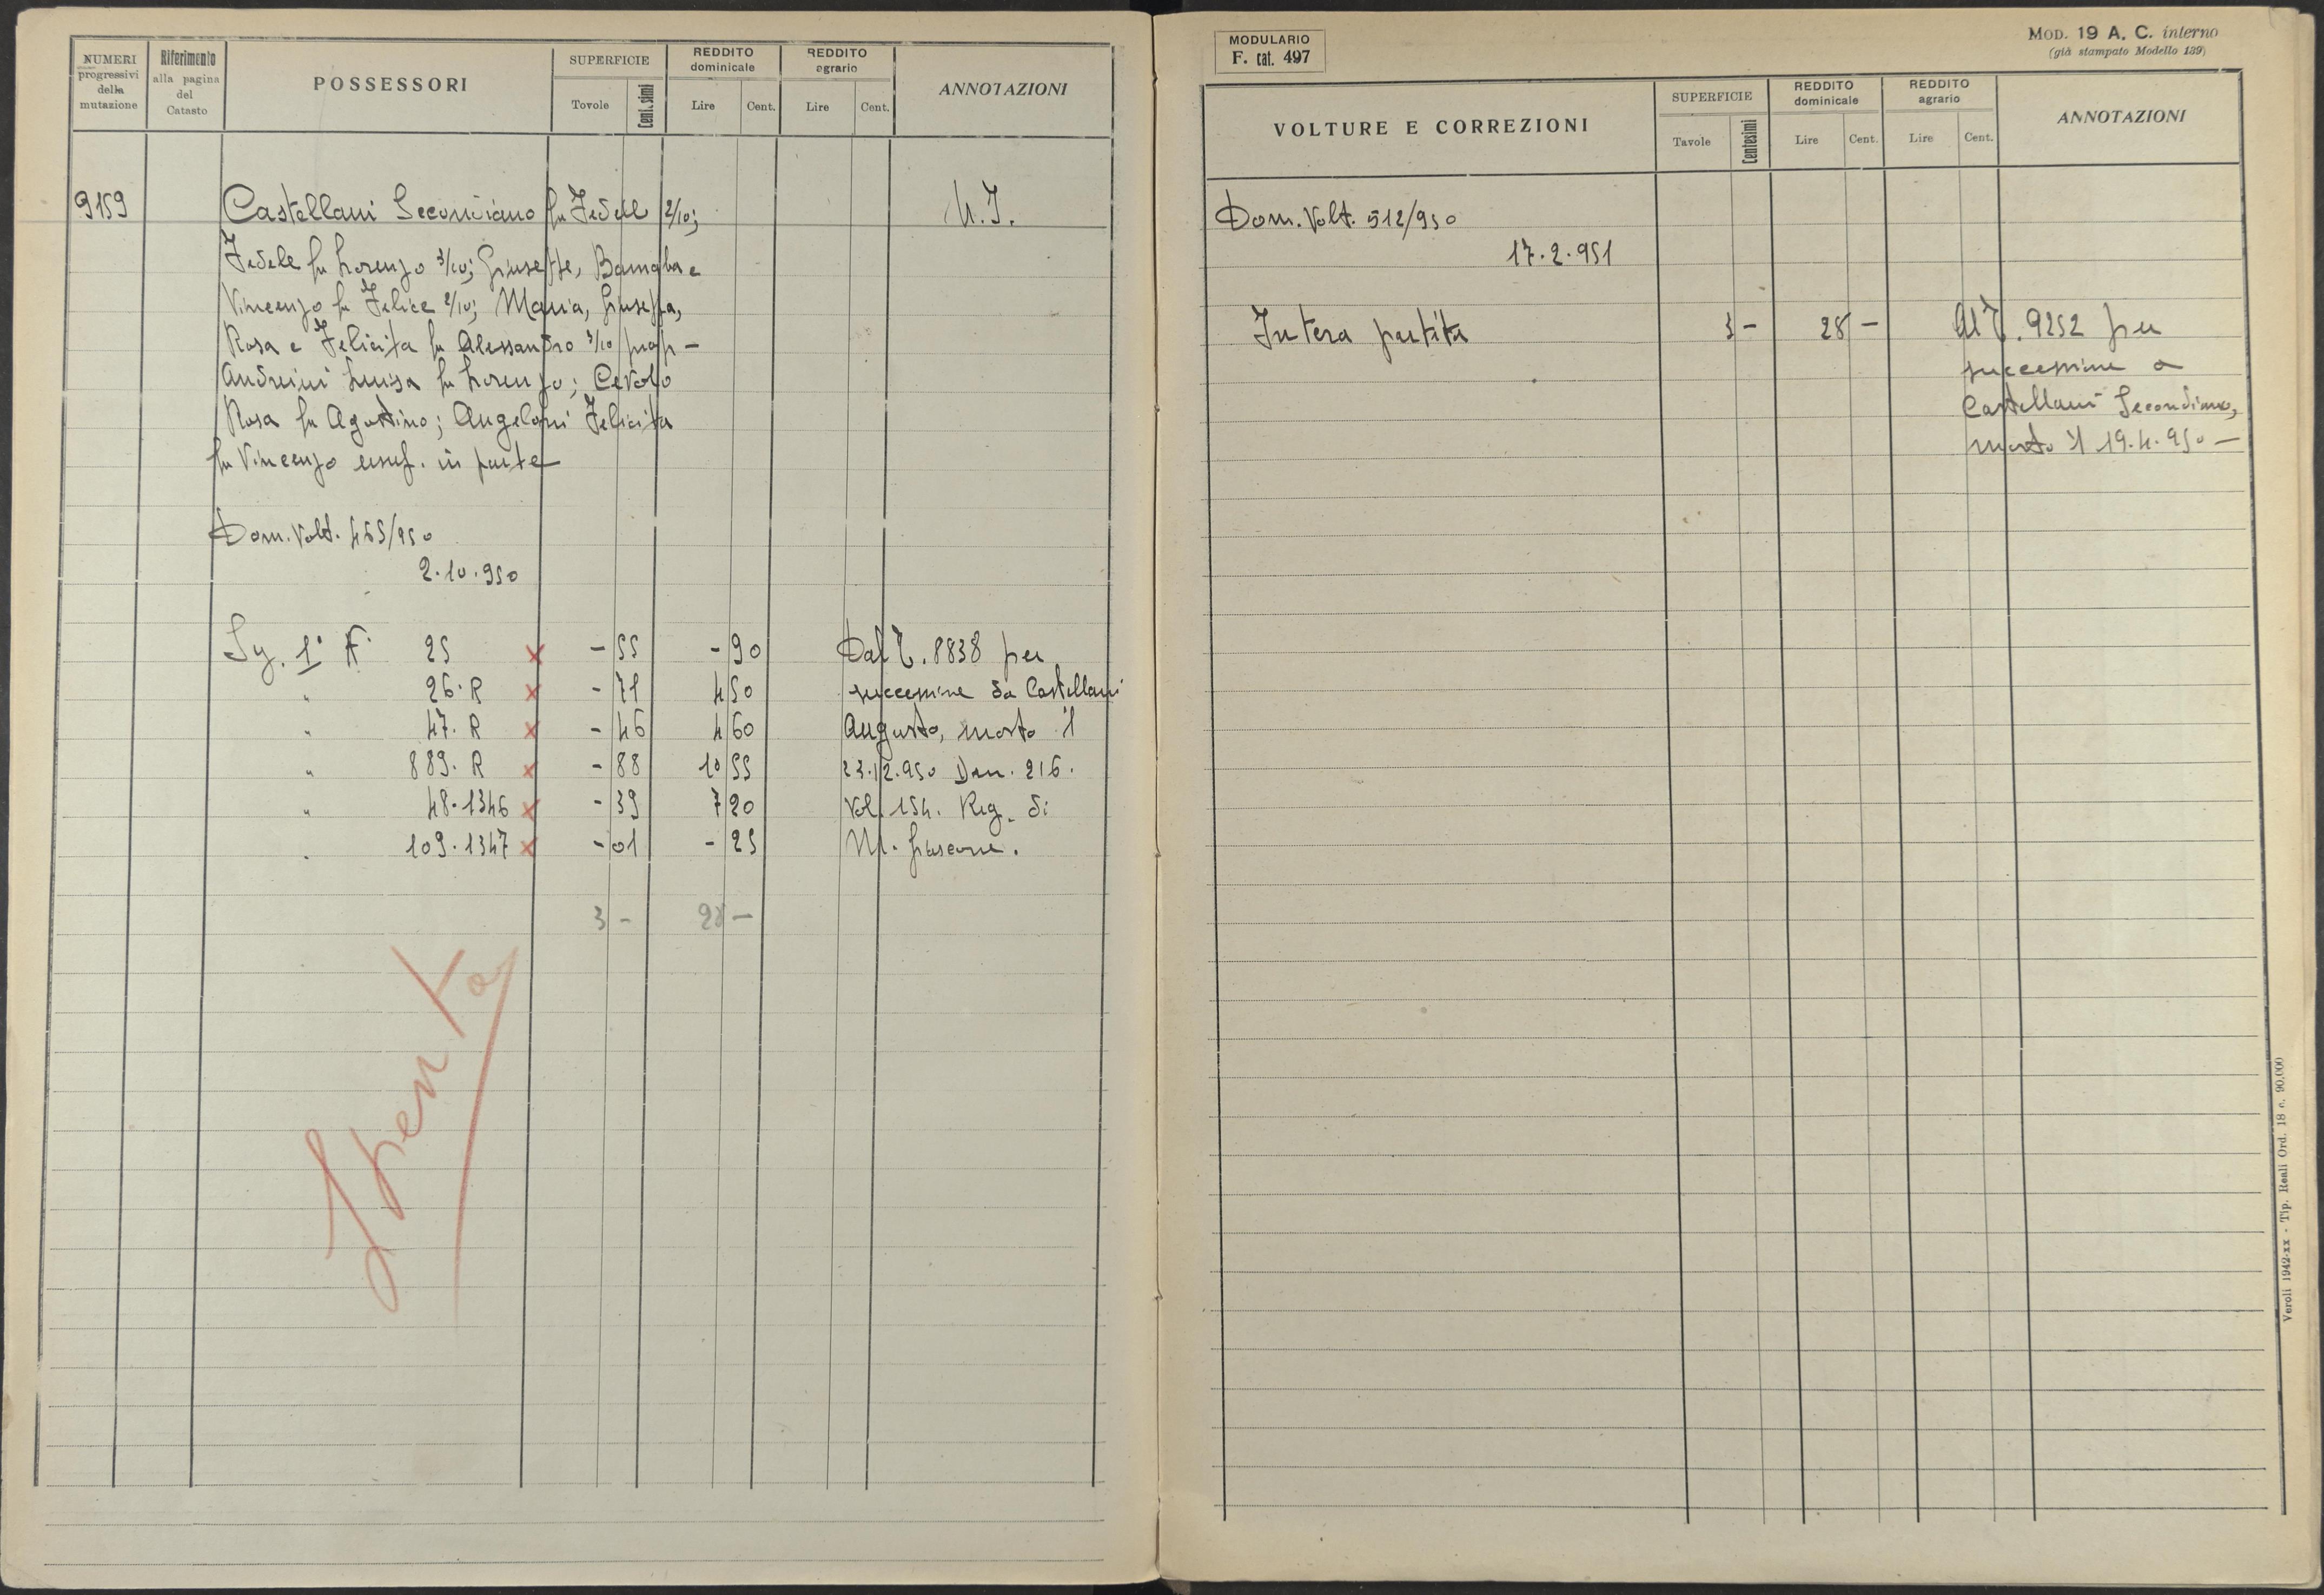 NUMERI progressivi della mutazione
Riferimento alla pagina del Catasto
POSSESSORI
SUPERFICIE
Tavole
Centesimi
REDDITO dominicale
Lire
Cent.
REDDITO agrario
Lire
Cent.
ANNOTAZIONI
9159
Castellani Secondiano fu Fedele 2/10; U.I.
Fedele fu Lorenzo 3/10; Giuseppe, Barnaba e
Vincenzo fu Felice 2/10; Maria, Giuseppa,
Rosa e Felicita fu Alessandro 3/10 prop-
Andreini Luisa fu Lorenzo; Cevolo
Rosa fu Agostino; Angeloni Felicita
fu Vincenzo usuf. in parte
Dom. Volt. 465/950
2.10.950
Sez. 1ª 25 x - 55 - 90 Dal N. 8838 per
" 26.R x - 71 4 50 successione da Castellani
" 47.R x - 46 4 60 Augusto, morto il
" 889.R x - 88 10 55 23.12.950 Den. 216.
" 48.1346 x - 39 7 20 Vol. 154. Reg. di
" 109.1347 x - 01 - 25 M. Fiascone.
3 - 28 -
Spenta
MODULARIO
F. cat. 497
MOD. 19 A. C. interno
(già stampato Modello 139)
VOLTURE E CORREZIONI
SUPERFICIE
Tavole
Centesimi
REDDITO dominicale
Lire
Cent.
REDDITO agrario
Lire
Cent.
ANNOTAZIONI
Dom. Volt. 512/950
17.2.951
Intera partita 3 - 28 - Al N. 9252 per
successione a
Castellani Secondiano,
morto il 19.4.950 -
Veroli 1942-xx - Tip. Reali Ord. 18 c. 90.000